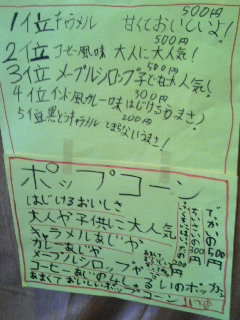 500円
1位キャラメル 甘くておいしいよ!
500円
2位コーヒー風味 大人に大人気!
500円
3位メープルシロップ 子ども大人気!
300円
4位インド風カレー味 はじけるうまさ!
200円
5位黒とうキャラメル とまらないうまさ!
ポップコーン
はじけるおいしさ
大人や子供に大人気
キャラメルあじや
カレーあじや
メープルシロップや
コーヒーあじの
あまくておいしいポップコーン